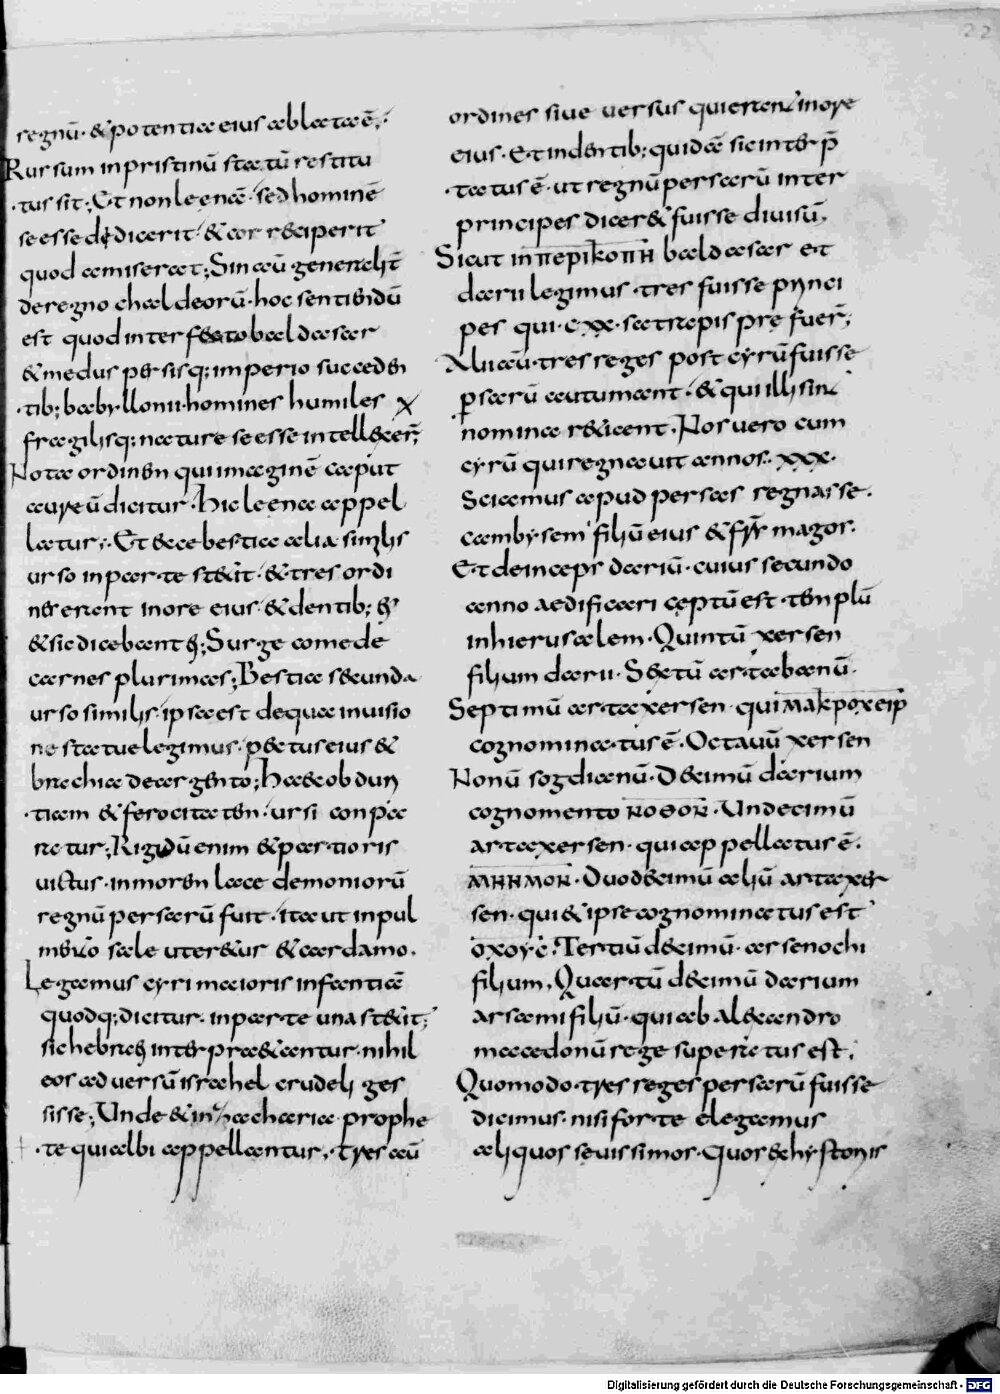 22
regnū· & potentia eius ablata ē;·
Rursum in pristinū statū restitu
tus sit; Et non leenā· sed hominē
se esse dedicerit· & cor receperit
quod amiserat; Sin aū generalit̄
de regno chaldeorū· hoc sentiendū
est quod interfecto baldasar
& medus persisq; imperio succeden
tib; babyllonii· homines humiles
fragilisq; nature se esse intellexer̄;
Nota ordinen qui imaginē caput
aureū dicitur· hic leena appel
latur;· Et ecce bestia alia similis
urso in parte stetit· & tres ordi
nes erant in ore eius· & dentib; ei'
& sic dicebant ei; Surge comede
carnes plurimas; Bestia secunda
urso similis· ipsa est de qua in uisio
ne statue legimus· pectus eius &
brachia de argento; Haec ob duri
tiam & ferocitaten· ursi conpa
ratur; Rigidū enim & parcioris
uictus· in moren lacedemoniorū
regnū persarū fuit· ita ut in pul
mento sale uterentur & cardamo.
Legamus cyri maioris infantiā
quodq; dicitur· in parte una stetit;
sic hebraei interpretantur· nihil
eos aduersū israhel crudeli ges
sisse; Unde & in zacharia prophe
te qui albi appellantur· tres aū
ordines siue uersus qui erant in ore
eius· Et in dentib; quidā sic interp̄
tatus ē· ut regnū persarū inter
principes diceret fuisse diuisū.
Sicut in ΠΕΡΙΚΟΠΗ baldasar et
darii legimus· tres fuisse princi
pes qui· cxx· satrapis prefuer̄;
Alii aū· tres reges post cyrū fuisse
psarū autumant· & qui illi sint
nomina reticent· Nos uero cum
cyrū qui regnauit annos· xxx·
Sciamus apud persas regnasse.
cambysem filiū eius & fr̄ magos·
Et deinceps dariū· cuius secundo
anno aedificari ceptū est· tenplū
in hierusalem· Quintū xersen
filium darii· Sextū artabanū·
Septimū artaxersen· qui ΜΑΚΡΟΧΕΙΡ
cognominatus ē· Octauū xersen
Nonū sogdianū· Decimū darium
cognomento ΝΟΘΟΝ· Undecimū
artaxersen· qui appellatus ē·
ΜΝΗΜΟΝ· Duodecimū aliū artaxer
sen· qui & ipse cognominatus est
ΟΧΟΥC· Tertiū decimū· arsen ochi
filium. Quartū decimū darium
arsami filiū· qui ab alexandro
macedonū rege superatus est.
Quomodo· tres reges persarū fuisse
dicimus· nisi forte elegamus
aliquos seuissimos· quos ex hystoriis
Digitalisierung gefördert durch die Deutsche Forschungsgemeinschaft - DFG